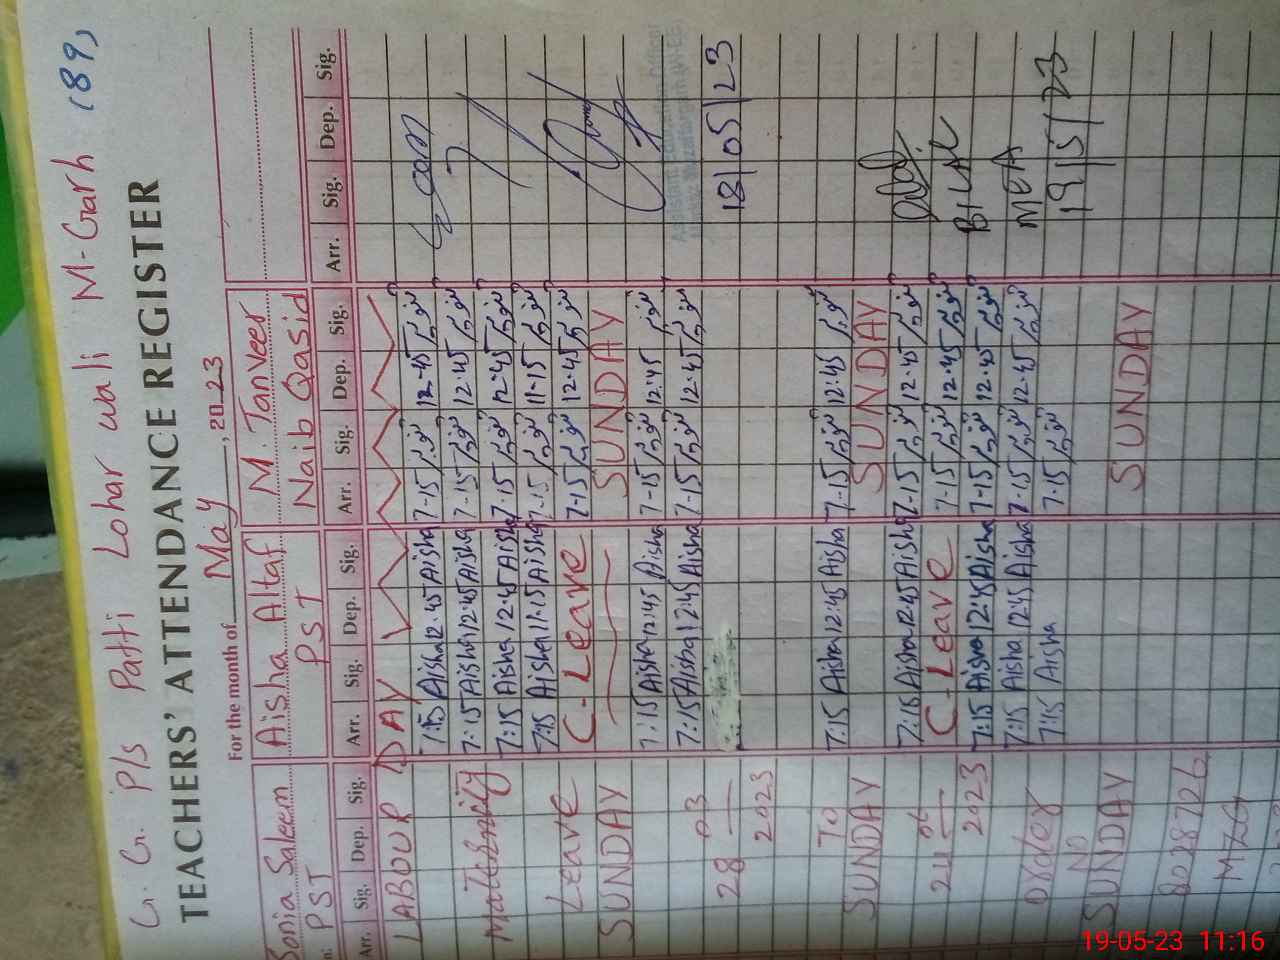 G. G. P/s Patti Lohar wali M-Garh (89)
TEACHERS' ATTENDANCE REGISTER
For the month of May, 2023
Sonia Saleem Aisha Altaf M. Tanveer
PST PST Naib Qasid
Arr. Sig. Dep. Sig. Arr. Sig. Dep. Sig. Arr. Sig. Dep. Sig. Arr. Sig. Dep. Sig.
LABOUR DAY
7:15 Aisha 12:45 Aisha 7-15 12-45
Maternity 7:15 Aisha 12:45 Aisha 7-15 12:45
7:15 Aisha 12:45 Aisha 7-15 12:45
7:15 Aisha 11:15 Aisha 7-15 11-15
Leave C-Leave 7-15 12-45
SUNDAY SUNDAY
7:15 Aisha 12:45 Aisha 7-15 12:45
03 7:15 Aisha 12:45 Aisha 7-15 12-45
28 18/05/23
2023
TO 7:15 Aisha 12:45 Aisha 7-15 12:45
SUNDAY SUNDAY
7:15 Aisha 12:45 Aisha 7-15 12-45
24 06 C-Leave 7-15 12-45
2023 7:15 Aisha 12:45 Aisha 7-15 12-45 BILAL
7:15 Aisha 12:45 Aisha 7-15 12-45 MEA
Order 7:15 Aisha 7-15 19/5/23
NO
SUNDAY SUNDAY
8028726
MZG
19-05-23 11:16